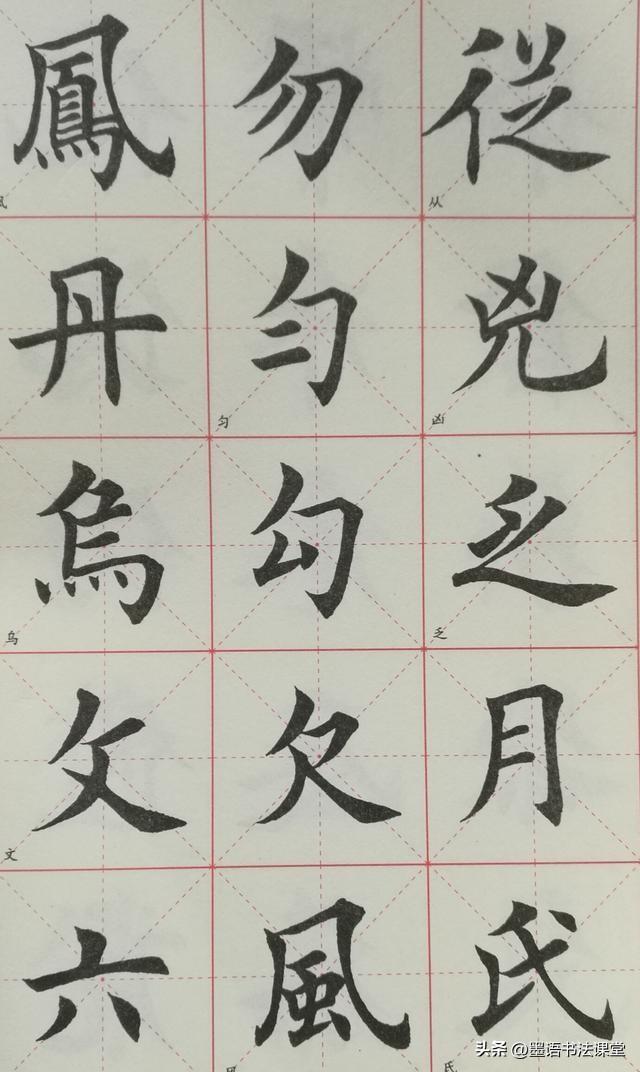 従
从
兇
凶
乏
乏
月
氏
氏
勿
匀
匀
勾
欠
風
风
鳳
丹
烏
乌
文
文
六
头条 @墨语书法课堂